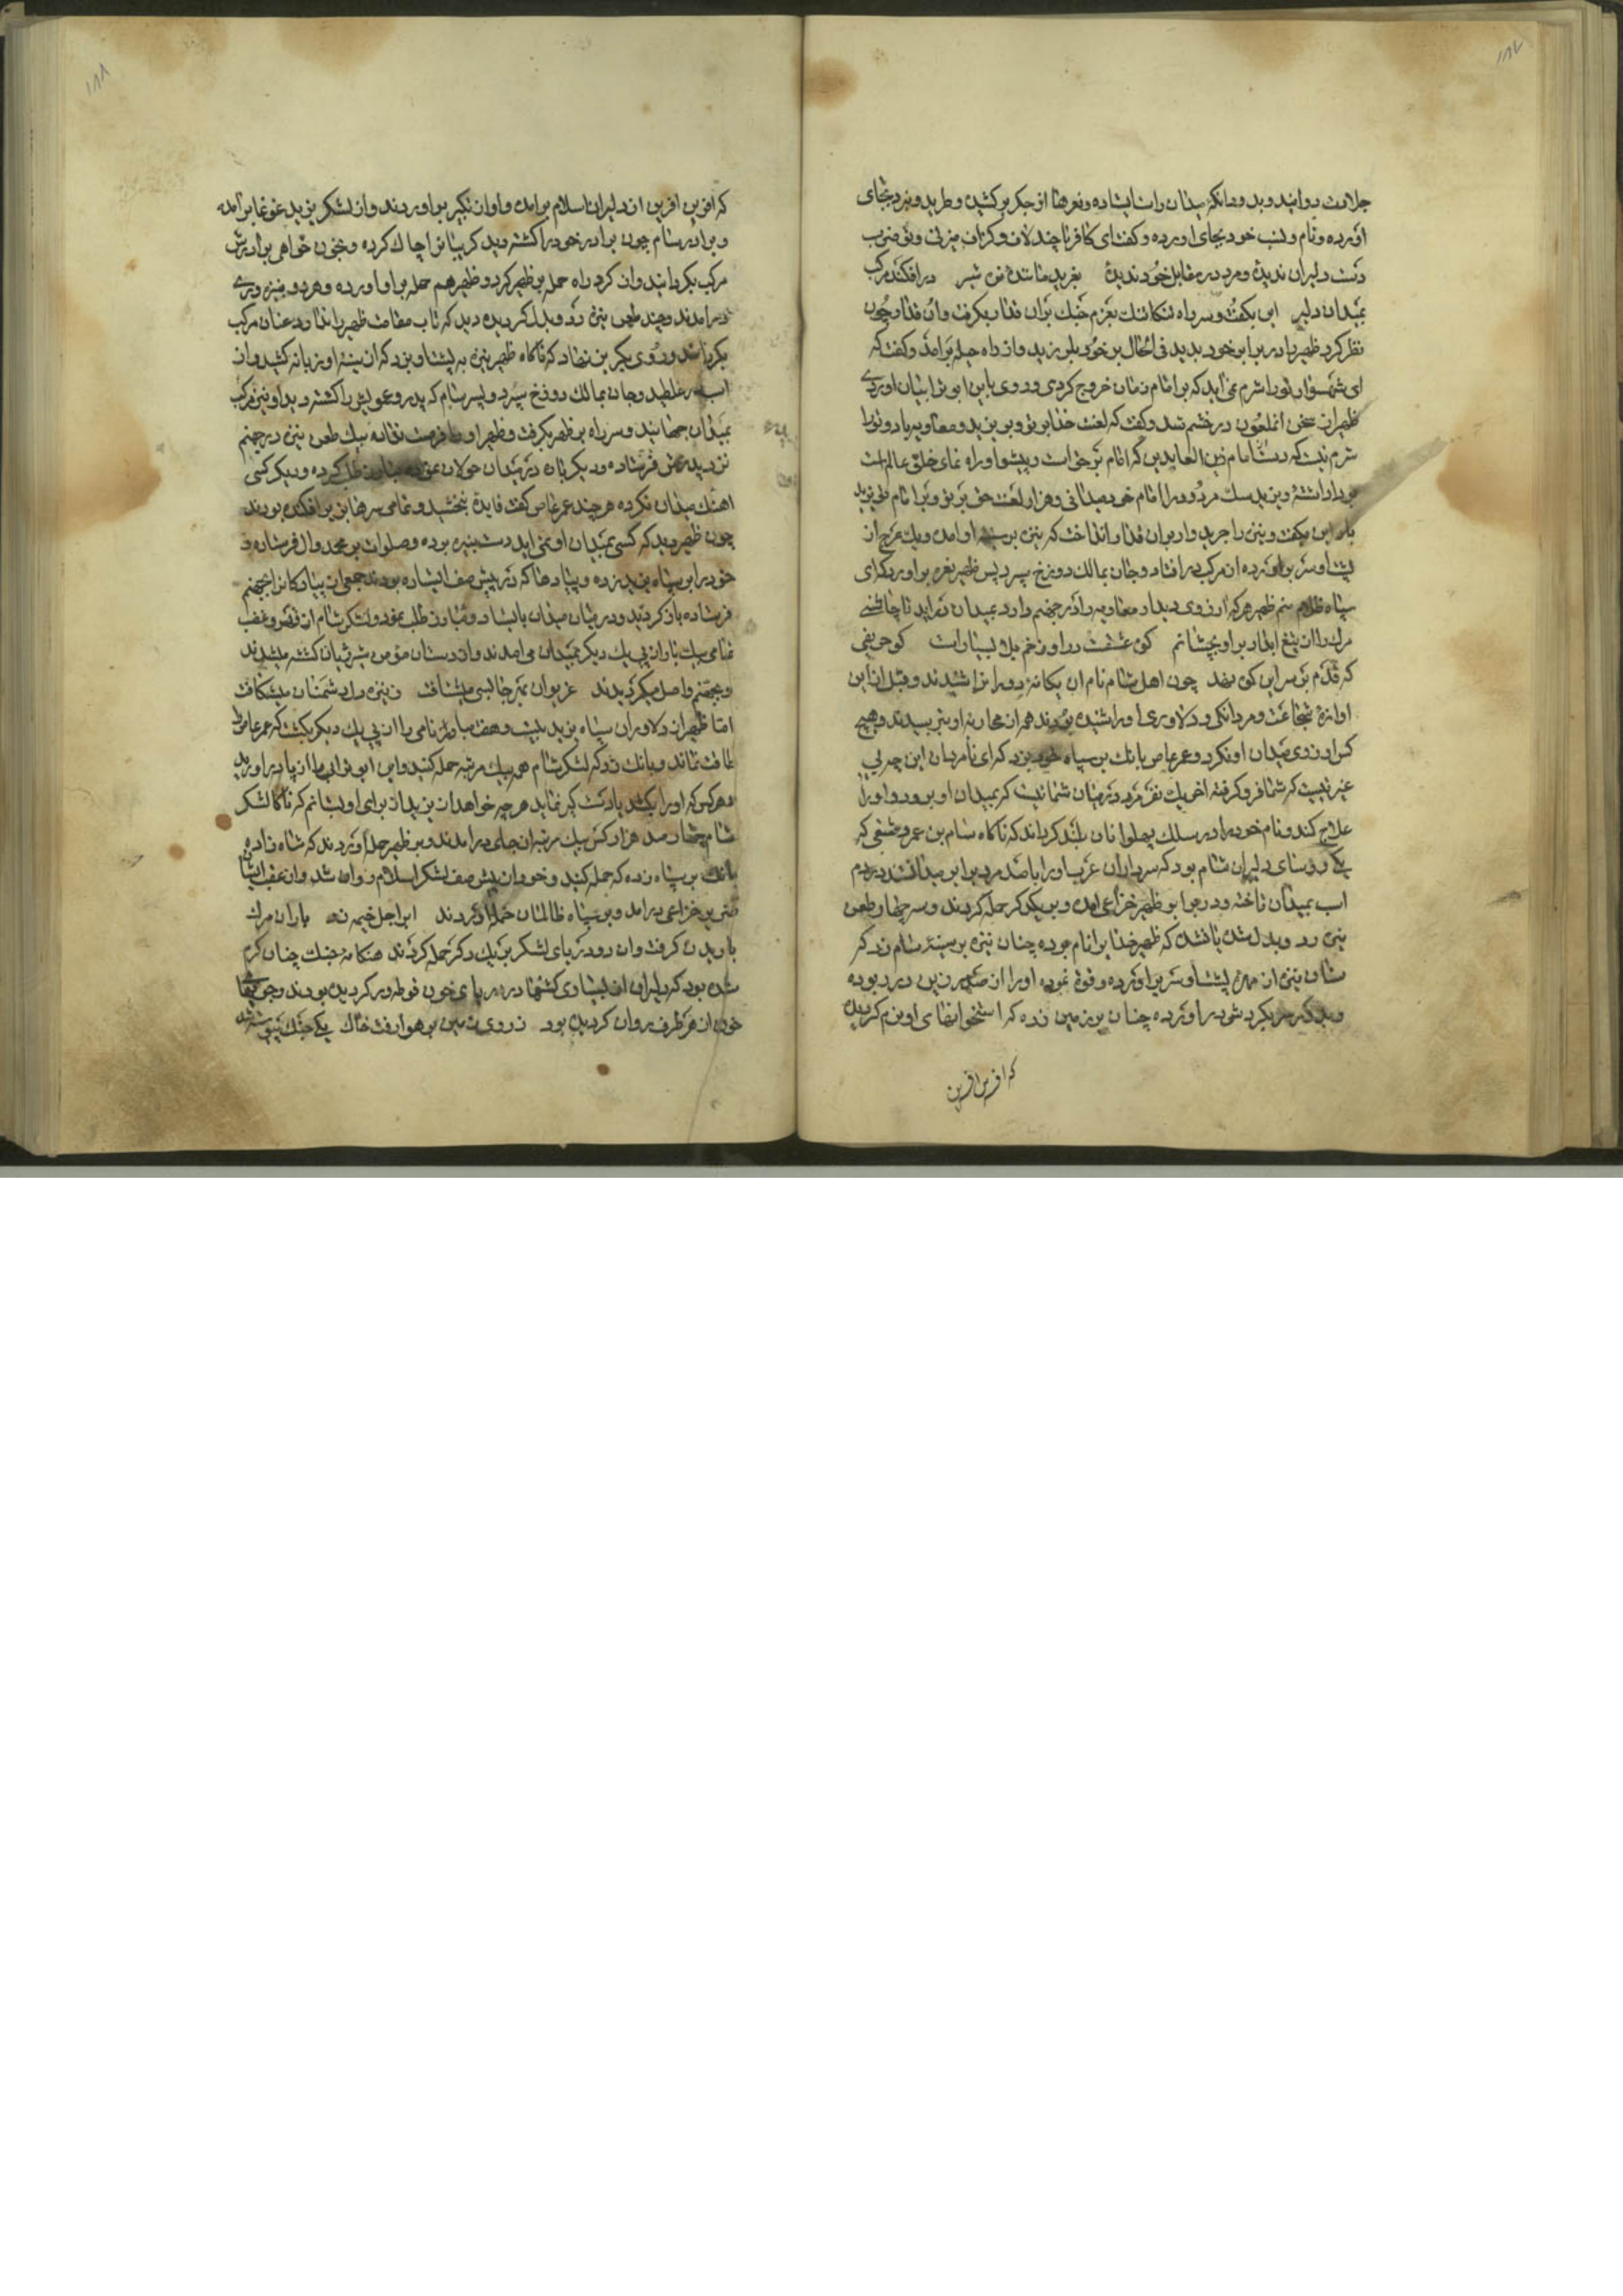 ۱۸۷
جلادت دوانید و بد و دانکه میدان راست ایستاده و نعرها از جکر برکشید و طرید و نبرد بجای
اورده و نام و نسب خود بجای اورده و کفت ای کافر تا چند لاف و کزاف میزنی و تو ضرب
دست دلیران ندیدهٔ و مرد در مقابل خود ندیدهٔ بغرید مانندهٔ نره شیر درافکند مرکب
بمیدان دلیر این بکفت و سر راه تنکاتنک بعزم جنک بران غدار بکرفت و ان غدار چون
نظر کرد ظهیر را در برابر خود بدید فی الحال بر خود بلرزید و از راه حیله برامد و کفت که
ای شهسوار تورا شرم نمی اید که بر امام زمان خروج کردی و روی باین ابو ترابیان اوردی
ظهیر از سخن انملعون در خشم شد و کفت که لعنت خدا بر تو و بر یزید و معاویه باد و تورا
شرم نیست که دست امام زین العابدین که امام بر حق است و پیشوا و راه نمای خلق عالم است
برداشته و یزید سک مردود را امام خود میدانی و هزار لعنت حق بر تو و بر امام تو یزید
باد این بکفت و نیزه را جرید وار بران غدار انداخت که نیزه بر سینه او امده و یک عرج از
پشت او سر براورده از مرکب در افتاد و جان بمالک دوزخ سپرد پس ظهیر نعره براورد که ای
سپاه ظلام منم ظهیر هر که ارزوی دیدار معاویه را در جهنم دارد بمیدان دراید تا چاشنی
مرک را از تیغ ابدار بر او بچشانم کوی عشقست در او زخم بلا بسیار است کو حریفی
که قدم بر سر این کوی نهد چون اهل شام نام ان یکانهٔ دورانرا شنیدند و قبل از این
اوازهٔ شجاعت و مردانکی و دلاوری او را شنیده بودند همه از محاربه او بترسیدند و هیچ
کس ارزوی میدان او نکرد و عمر عاص بانک بر سپاه خود بزد که ای نامردان این چه بی
غیرتیست که شما فرو کرفته اخر یک نفر مرد در میان شما نیست که بمیدان او برود و او را
علاج کند و نام خود را در سلک پهلوانان بلند کرداند که ناکاه سام بن عمرو دمشقی که
یکی روسای دلیران شام بود که سرداران عرب او را با صد مرد برابر میدانستند در دم
اسب بمیدان تاخته و در برابر ظهیر خزاعی امده و بر یکدکر حمله کردند و سی چهار طعن
نیزه رد و بدل شده باشد که ظهیر خدا برا نام برده چنان نیزه بر سینهٔ سام زد که
سنان نیزه از مهرهٔ پشت او سر براورده و قوة نموده او را از صدر زین در ربوده
و بدکر سر بکردش در اورده چنان بر زمین زده که استخوانهای او نرم کردید
که افرین افرین
۱۸۸
که افرین افرین از دلیران اسلام برامده و اواز تکبیر براوردند و از لشکر یزید غوغا برامد
و برادر سام چون برادر خود را کشته دید کریبانرا چاک کرده و بخون خواهی برادرش
مرکب بکردانید و از کرد راه حمله بر ظهیر کرد و ظهیر هم حمله بر او اورده و هر دو بنیزه وری
درامدند و چند طعن نیزه رد و بدل کردیده دید که تاب مقامت ظهیر را ندارد عنان مرکب
بکردانید و روی بکریز نهاد که ناکاه ظهیر نیزه به پشت او بزد که از سینهٔ او زبانه کشید و از
اسب در غلطید و جان بمالک دوزخ سپرد و پسر سام که پدر و عمویش را کشته دید او نیز مرکب
بمیدان جهانید و سر راه بر ظهیر بکرفت و ظهیر او را فرصت نداده بیک طعن نیزه در جهنم
نزد پدرش فرستاده و دیکر باره در میدان جولان نموده مبارز طلب کرده و دیکر کسی
اهنک میدان نکرده هر چند عمر عاص کفت فایدهٔ نبخشید و تمامی سرها بزیر افکنده بودند
چون ظهیر دید که کسی بمیدان او نمی اید دست بنیزه برده و صلوات بر محمد و ال فرستاده و
خود را بر سپاه یزید زده و پیادها که در پیش صف ایستاده بودند جمعی از پیادکانرا بجهنم
فرستاده باز کردید و در میان میدان بایستاد و مبارز طلب نمود و لشکر شام از قهر و غضب
تمامی یک باره از پی یک دیکر بمیدان می امدند و از دستان مؤمن شرزیان کشته میشدند
و بجهنم واصل میکردیدند غریوان بهر جانبی میشتافت ز نیزه دل دشمنان میشکافت
امّا ظهیر از دلاوران سپاه یزید بیست و هفت مبارز نامی را از پی یک دیکر بکشت که عمر عاص را
طاقت نماند و بانک زد که لشکر شام همه بیک مرتبه حمله کنید و این ابو ترابی را از پا دراورید
و هر کس که او را بکشد یا دست کیر نماید هر چه خواهد از یزید از برای او بستانم که ناکاه لشکر
شام چهار صد هزار کس بیک مرتبه از جای درامدند و بر ظهیر حمله اوردند که شاه زاده
بانک بر سپاه زده که حمله کنید و خود از پیش صف لشکر اسلام روان شد و از عقب ایشان
خزاعی درامد و بر سپاه ظالمان حمله اوردند ابر اجل خیمه زد باران مرک
باریدن کرفت و ان رود دریای لشکر بر یک دکر حمله کردند هنکامهٔ جنک چنان کرم
شده بود که دلیران از بسیاری کشتها در دریای خون غوطه ور کردیده بودند و جوی های
خون از هر طرف روان کردیده بود ز روی زمین بر هوا رفت خاک یکی جنک